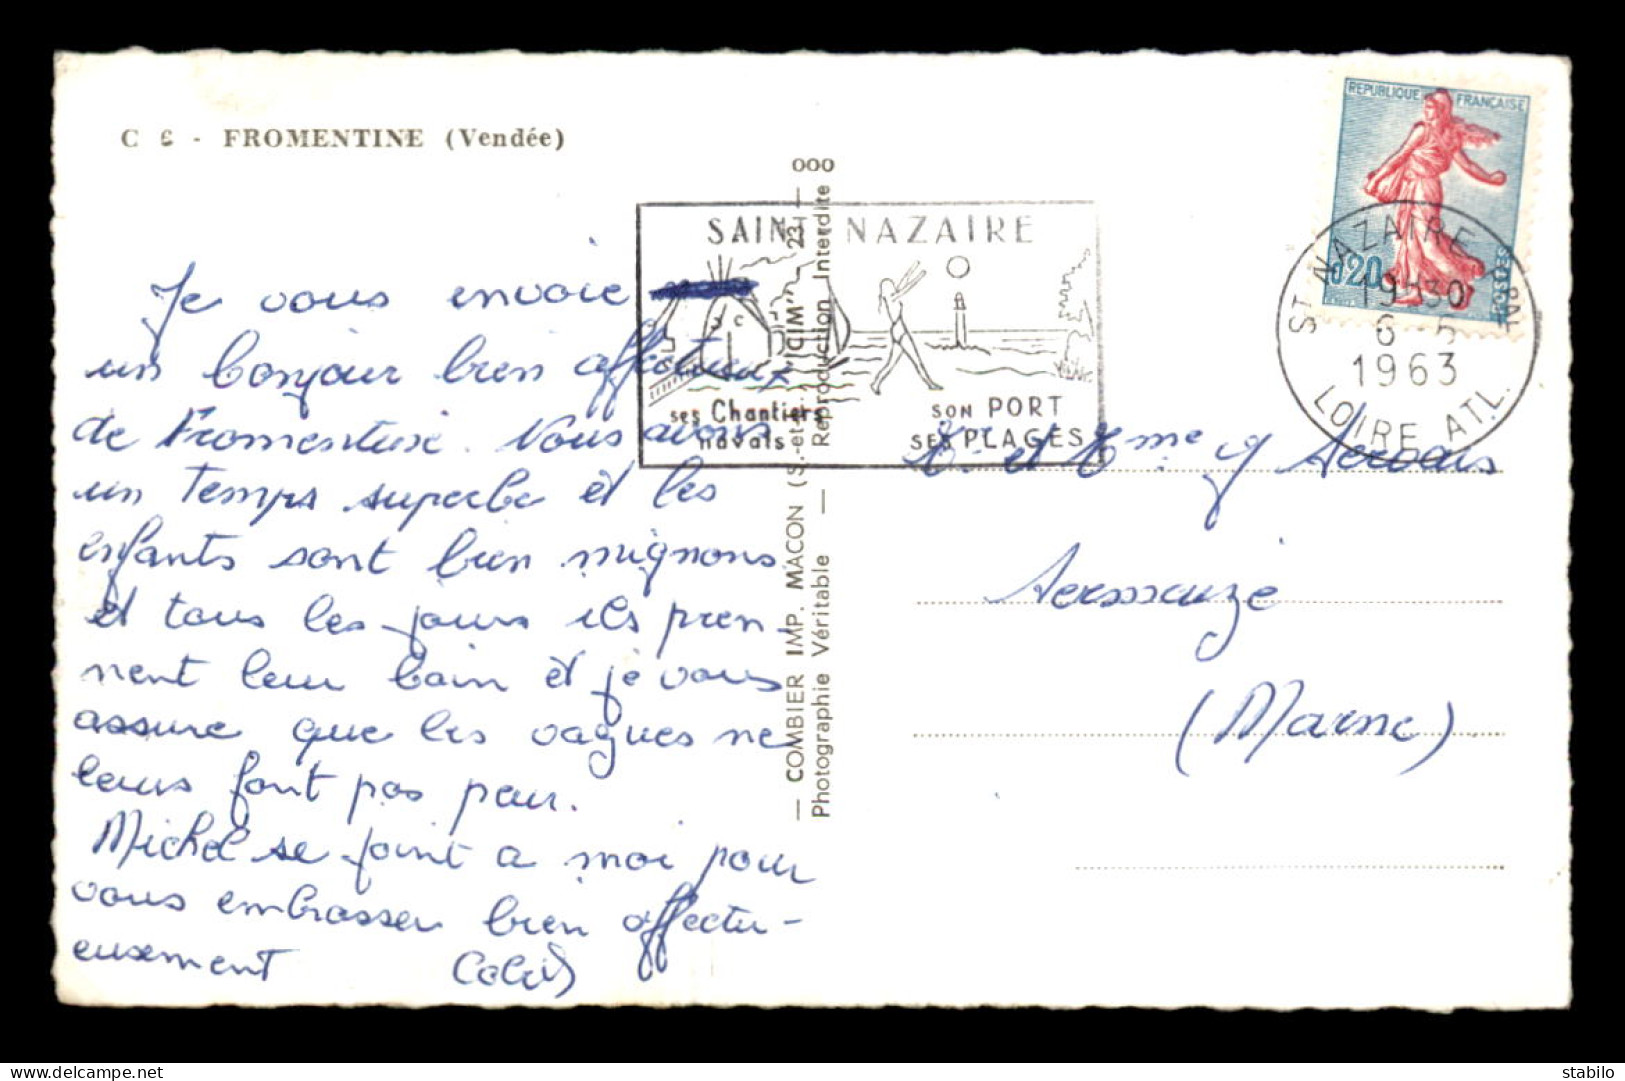 C 6 - FROMENTINE (Vendée)
Je vous envoie
un bonjour bien affectueux
de Fromentine. Nous avons
un temps superbe et les
enfants sont bien mignons
et tous les jours ils pren-
nent leur bain et je vous
assure que les vagues ne
leurs font pas peur.
Michel se joint a moi pour
vous embrasser bien affectu-
eusement
— COMBIER IMP. MACON (S.-et-L.) "CIM" 23 —
Photographie Véritable — Reproduction Interdite
ooo
SAINT NAZAIRE
ses Chantiers
navals
SON PORT
SES PLAGES
REPUBLIQUE FRANÇAISE
0,20
POSTES
ST NAZAIRE PPAL
19H30
6 - 5
1963
LOIRE ATL.
et Mme
(Marne)
stabilo
delcampe.net